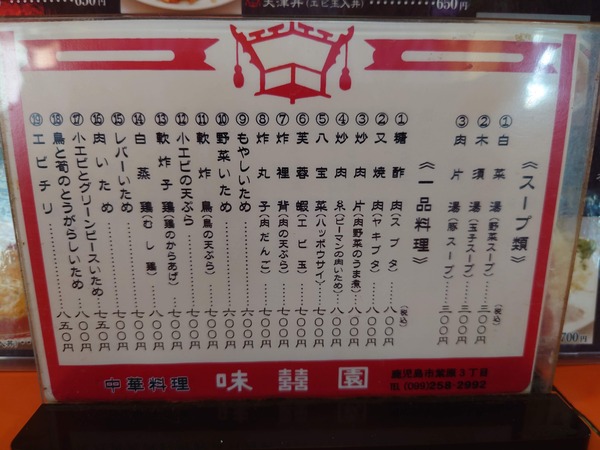 天津丼(エビ玉入丼)……650円
《スープ類》
① 白菜湯(野菜スープ)……三〇〇円
② 木須湯(玉子スープ)……三〇〇円
③ 肉片湯(豚スープ)……三〇〇円
《一品料理》
(税込)
① 糖酢肉(スブタ)……八〇〇円
② 叉焼肉(ヤキブタ)……八〇〇円
③ 炒肉片(肉野菜のうま煮)……八〇〇円
④ 炒肉糸(ピーマンの肉いため)……八〇〇円
⑤ 八宝菜(ハッポウサイ)……七〇〇円
⑥ 芙蓉蝦(エビ玉)……七〇〇円
⑦ 炸裡背(肉の天ぷら)……七〇〇円
⑧ 炸丸子(肉だんご)……七〇〇円
⑨ もやしいため……六〇〇円
⑩ 野菜いため……六〇〇円
⑪ 軟炸鳥(鳥の天ぷら)……七〇〇円
⑫ 小エビの天ぷら……八〇〇円
⑬ 軟炸子鶏(鶏のからあげ)……七〇〇円
⑭ 白蒸鶏(むし鶏)……七〇〇円
⑮ レバーいため……七〇〇円
⑯ 肉いため……七五〇円
⑰ 小エビとグリーンピースいため……八〇〇円
⑱ 鳥と筍のとうがらしいため……七〇〇円
⑲ エビチリ……八五〇円
中華料理 味囍園
鹿児島市紫原3丁目
TEL(099)258-2992
700円